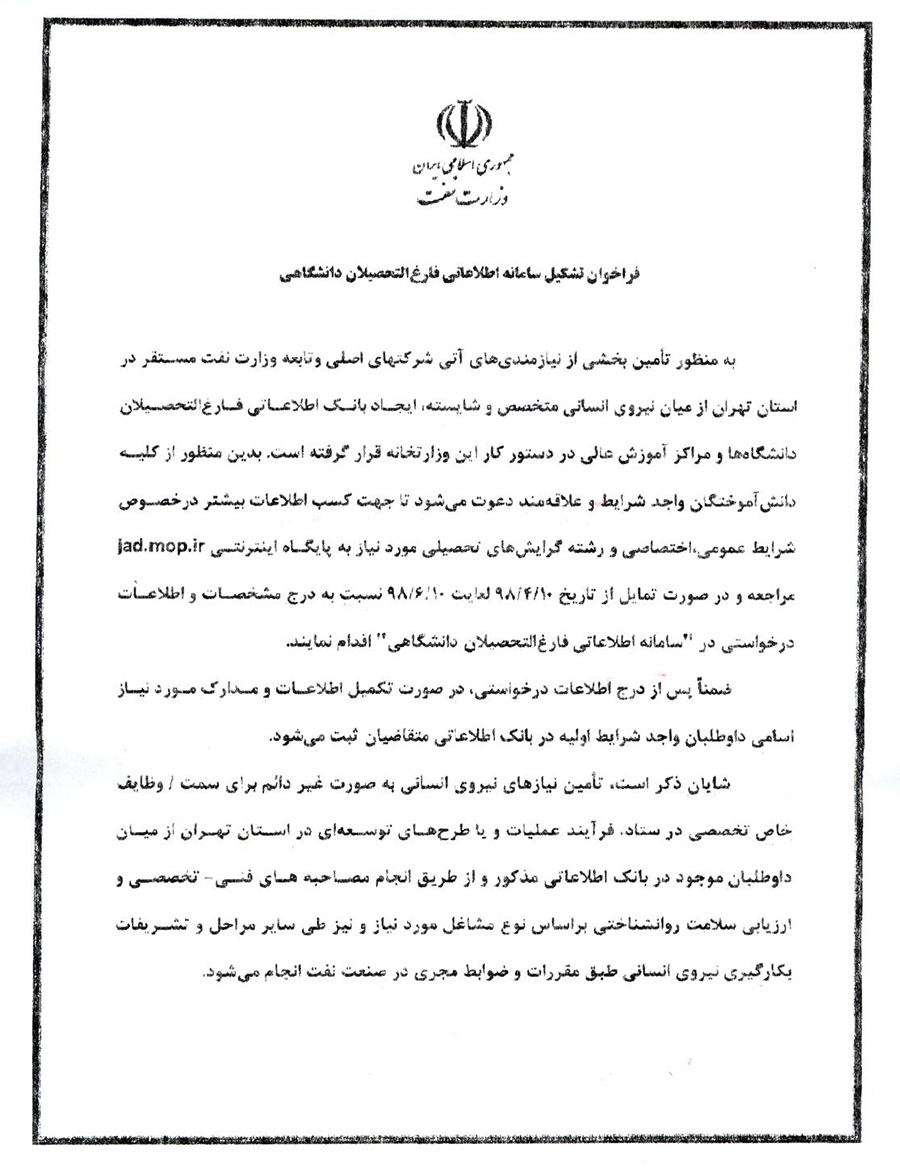 جمهوری اسلامی ایران
وزارت نفت
فراخوان تشکیل سامانه اطلاعاتی فارغ‌التحصیلان دانشگاهی
به منظور تأمین بخشی از نیازمندی‌های آتی شرکتهای اصلی وتابعه وزارت نفت مستقر در
استان تهران از میان نیروی انسانی متخصص و شایسته، ایجاد بانک اطلاعاتی فارغ‌التحصیلان
دانشگاه‌ها و مراکز آموزش عالی در دستور کار این وزارتخانه قرار گرفته است. بدین منظور از کلیه
دانش‌آموختگان واجد شرایط و علاقه‌مند دعوت می‌شود تا جهت کسب اطلاعات بیشتر درخصوص
شرایط عمومی،اختصاصی و رشته گرایش‌های تحصیلی مورد نیاز به پایگاه اینترنتی jad.mop.ir
مراجعه و در صورت تمایل از تاریخ ۹۸/۴/۱۰ لغایت ۹۸/۶/۱۰ نسبت به درج مشخصات و اطلاعات
درخواستی در "سامانه اطلاعاتی فارغ‌التحصیلان دانشگاهی" اقدام نمایند.
ضمناً پس از درج اطلاعات درخواستی، در صورت تکمیل اطلاعات و مدارک مورد نیاز
اسامی داوطلبان واجد شرایط اولیه در بانک اطلاعاتی متقاضیان ثبت می‌شود.
شایان ذکر است، تأمین نیازهای نیروی انسانی به صورت غیر دائم برای سمت / وظایف
خاص تخصصی در ستاد، فرآیند عملیات و یا طرح‌های توسعه‌ای در استان تهران از میان
داوطلبان موجود در بانک اطلاعاتی مذکور و از طریق انجام مصاحبه های فنی- تخصصی و
ارزیابی سلامت روانشناختی براساس نوع مشاغل مورد نیاز و نیز طی سایر مراحل و تشریفات
بکارگیری نیروی انسانی طبق مقررات و ضوابط مجری در صنعت نفت انجام می‌شود.